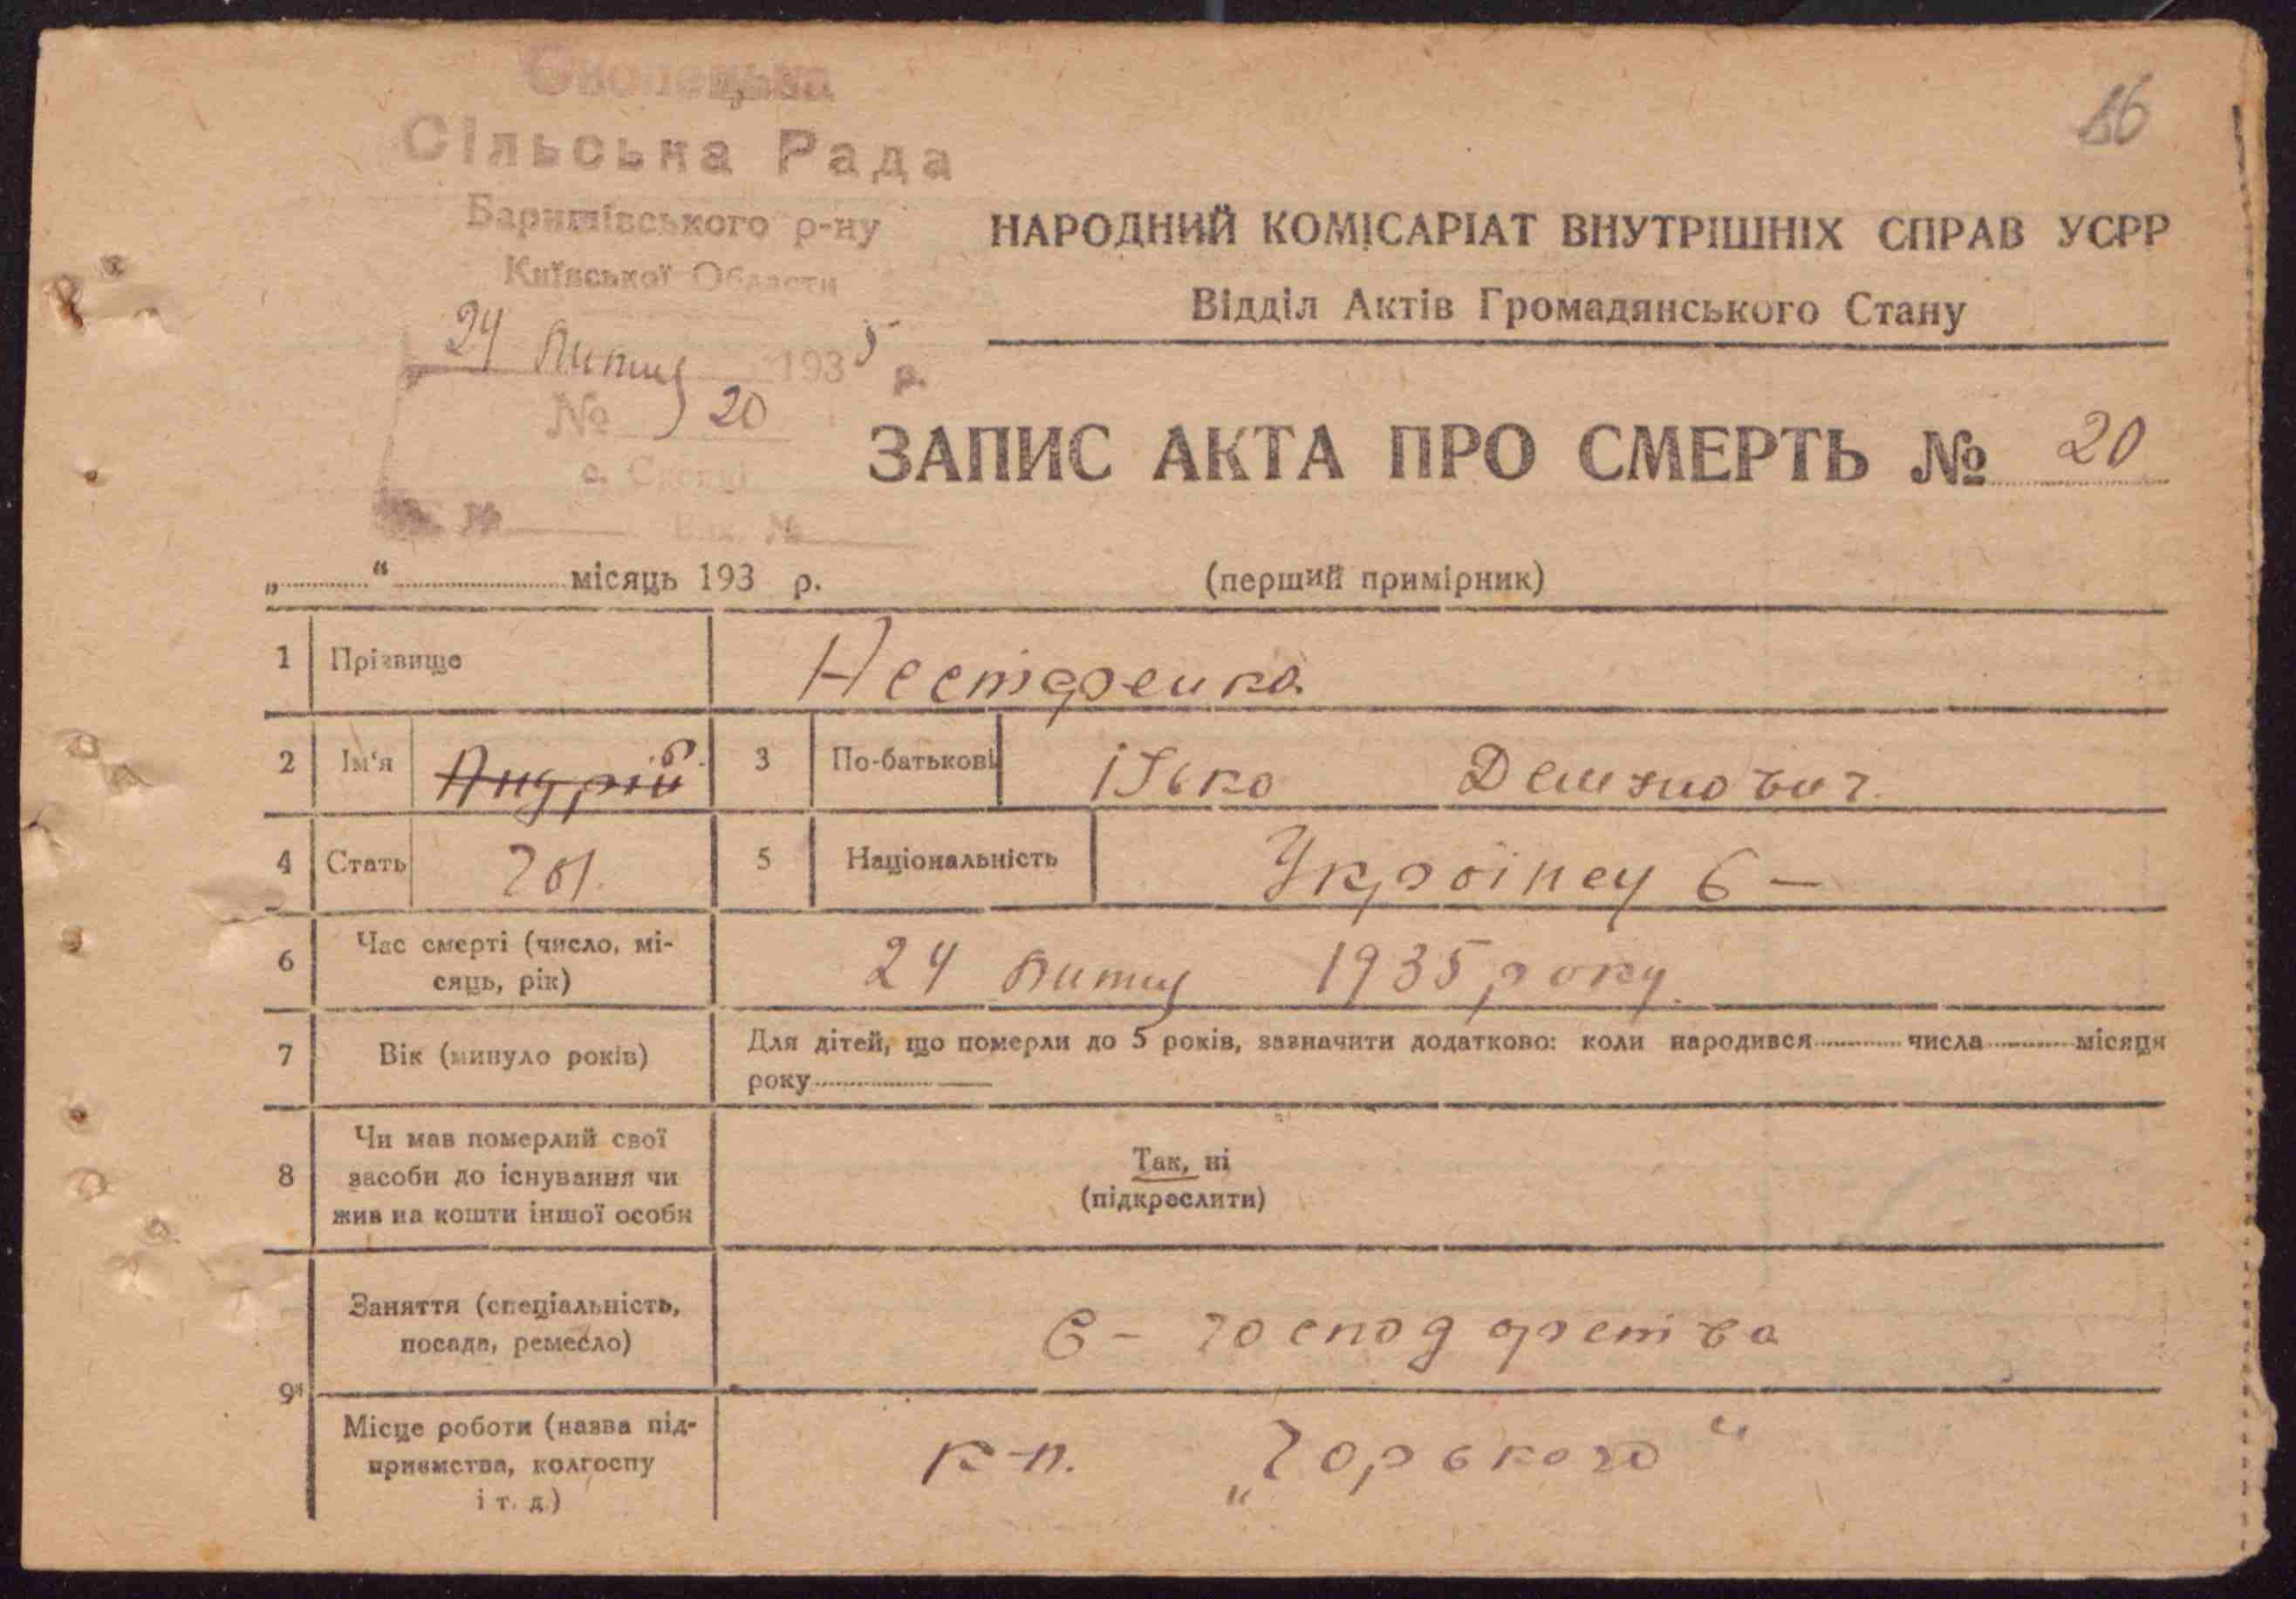 Скопецька
Сільська Рада
Баришівського р-ну
Київської Области
24 Лютий 1935 р.
№ 20
с. Скопці
№ Вих. №
86
НАРОДНИЙ КОМІСАРІАТ ВНУТРІШНІХ СПРАВ УСРР
Відділ Актів Громадянського Стану
ЗАПИС АКТА ПРО СМЕРТЬ № 20
„ “ місяць 193 р. (перший примірник)
1 Прізвище Нестеренко
2 Ім'я Андрій 3 По-батькові Ісько
4 Стать чол. 5 Національність
6 Час смерті (число, мі-
сяць, рік) 24 1935 року.
7 Вік (минуло років) Для дітей, що померли до 5 років, зазначити додатково: коли народився числа місяця
року
8 Чи мав померлий свої
засоби до існування чи
жив на кошти іншої особи
Так, ні
(підкреслити)
9 Заняття (спеціальність,
посада, ремесло) С-господарства
Місце роботи (назва під-
приємства, колгоспу
і т. д.) „Горького“